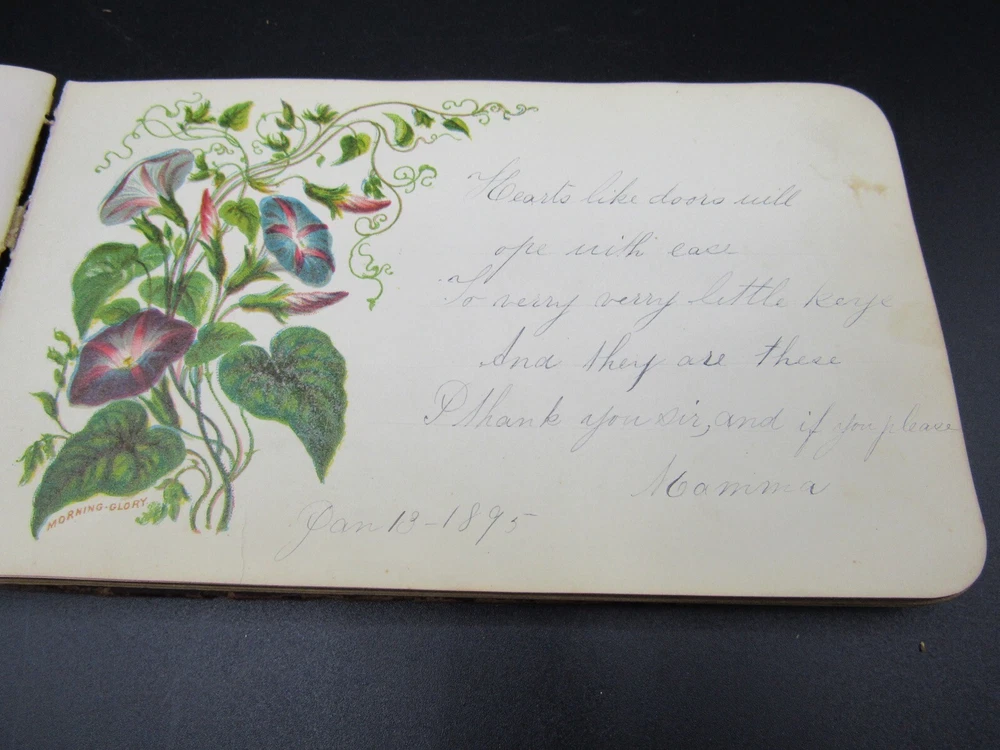 Hearts like doors will
ope with ease
To verry verry little keys
And they are these
I thank you sir, and if you please
Mamma
Jan 13-1895
MORNING-GLORY.